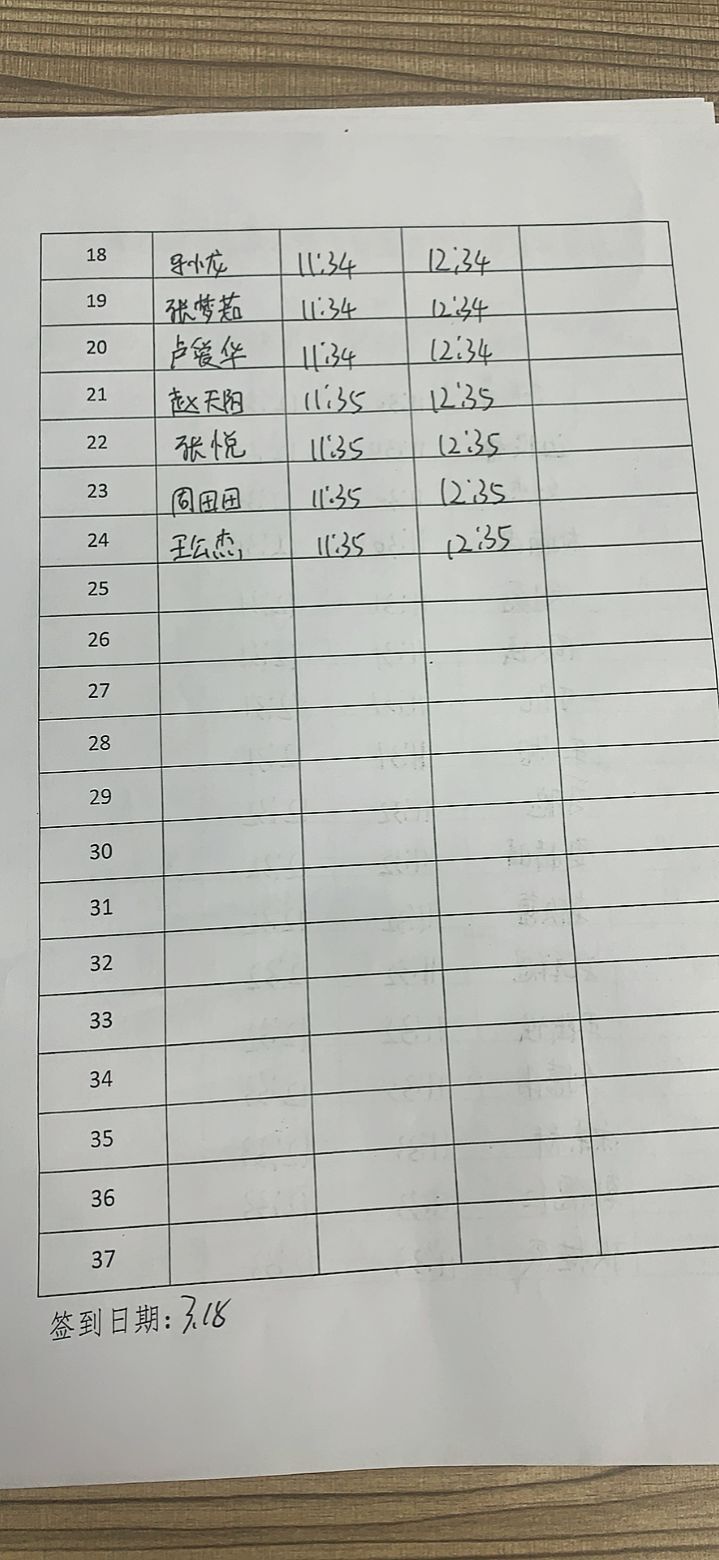 18 小龙 11:34 12:34
19 张梦茹 11:34 12:34
20 卢爱华 11:34 12:34
21 赵天阳 11:35 12:35
22 张悦 11:35 12:35
23 周田田 11:35 12:35
24 王公杰 11:35 12:35
25
26
27
28
29
30
31
32
33
34
35
36
37
签到日期:3.18